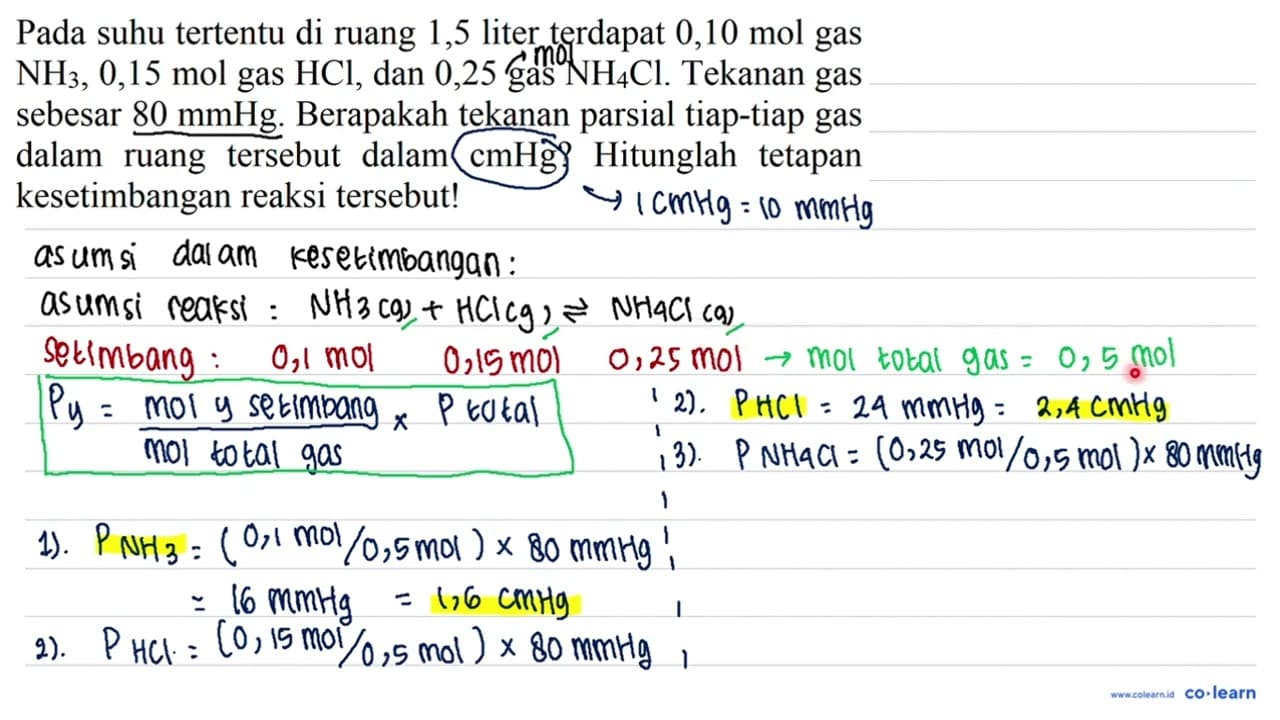 Pada suhu tertentu di ruang 1,5 liter terdapat 0,10 mol gas
mol
NH₃, 0,15 mol gas HCl, dan 0,25 gas NH₄Cl. Tekanan gas
sebesar 80 mmHg. Berapakah tekanan parsial tiap-tiap gas
dalam ruang tersebut dalam cmHg? Hitunglah tetapan
kesetimbangan reaksi tersebut!
↪ 1 cmHg = 10 mmHg
asumsi dalam kesetimbangan :
asumsi reaksi : NH3 (g) + HCl (g) ⇌ NH4Cl (g)
setimbang : 0,1 mol 0,15 mol 0,25 mol → mol total gas = 0,5 mol
Py = mol y setimbang / mol total gas × P total
1). P NH3 = (0,1 mol / 0,5 mol) × 80 mmHg
= 16 mmHg = 1,6 cmHg
2). P HCl = (0,15 mol / 0,5 mol) × 80 mmHg
2). P HCl = 24 mmHg = 2,4 cmHg
3). P NH4Cl = (0,25 mol / 0,5 mol) × 80 mmHg
www.colearn.id co·learn